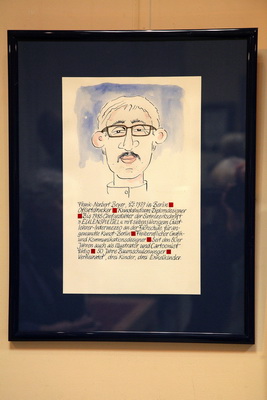 Frank-Norbert Beyer, 1/2 1939 in Berlin ■
Offsetdrucker ■ Kunststudium Diplomdesigner
■ Bis 1986 Chefgestalter der Satirezeitschrift
»EULENSPIEGEL« mit siebenjährigem Gast-
lehrer-Intermezzo an der Fachschule für an-
gewandte Kunst Berlin ■ Freiberuflicher Grafik-
und Kommunikationsdesigner ■ Seit den 80er
Jahren auch als Illustrator und Cartoonist
tätig ■ 30 Jahre Baumschulenweger ■
Verheiratet, drei Kinder, drei Enkelkinder